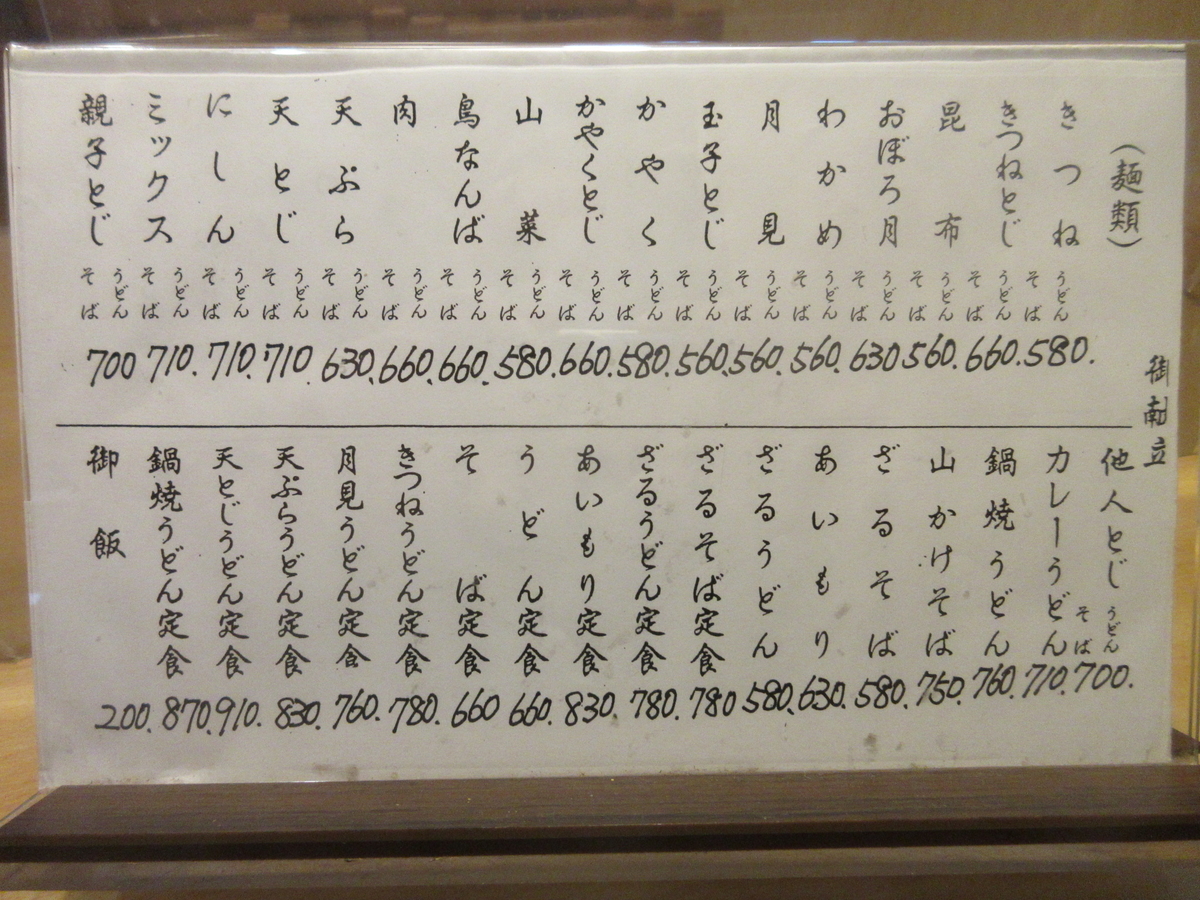 御献立
（麺類）
きつね うどん そば 580.
きつねとじ うどん そば 660.
昆布 うどん そば 560.
おぼろ月 うどん そば 630
わかめ うどん そば 560.
月見 うどん そば 560.
玉子とじ うどん そば 560.
かやく うどん そば 580.
かやくとじ うどん そば 660.
山菜 うどん そば 580.
鳥なんば うどん そば 660.
肉 うどん そば 660.
天ぷら うどん そば 630.
天とじ うどん そば 710.
にしん うどん そば 710.
ミックス うどん そば 710.
親子とじ うどん そば 700
他人とじ うどん そば 700.
カレーうどん 710.
鍋焼うどん 760.
山かけそば 750.
ざるそば 580.
あいもり 630.
ざるうどん 580.
ざるそば定食 780
ざるうどん定食 780.
あいもり定食 830.
うどん定食 660.
そば定食 660
きつねうどん定食 780.
月見うどん定食 760.
天ぷらうどん定食 830.
天とじうどん定食 910.
鍋焼うどん定食 870.
御飯 200.